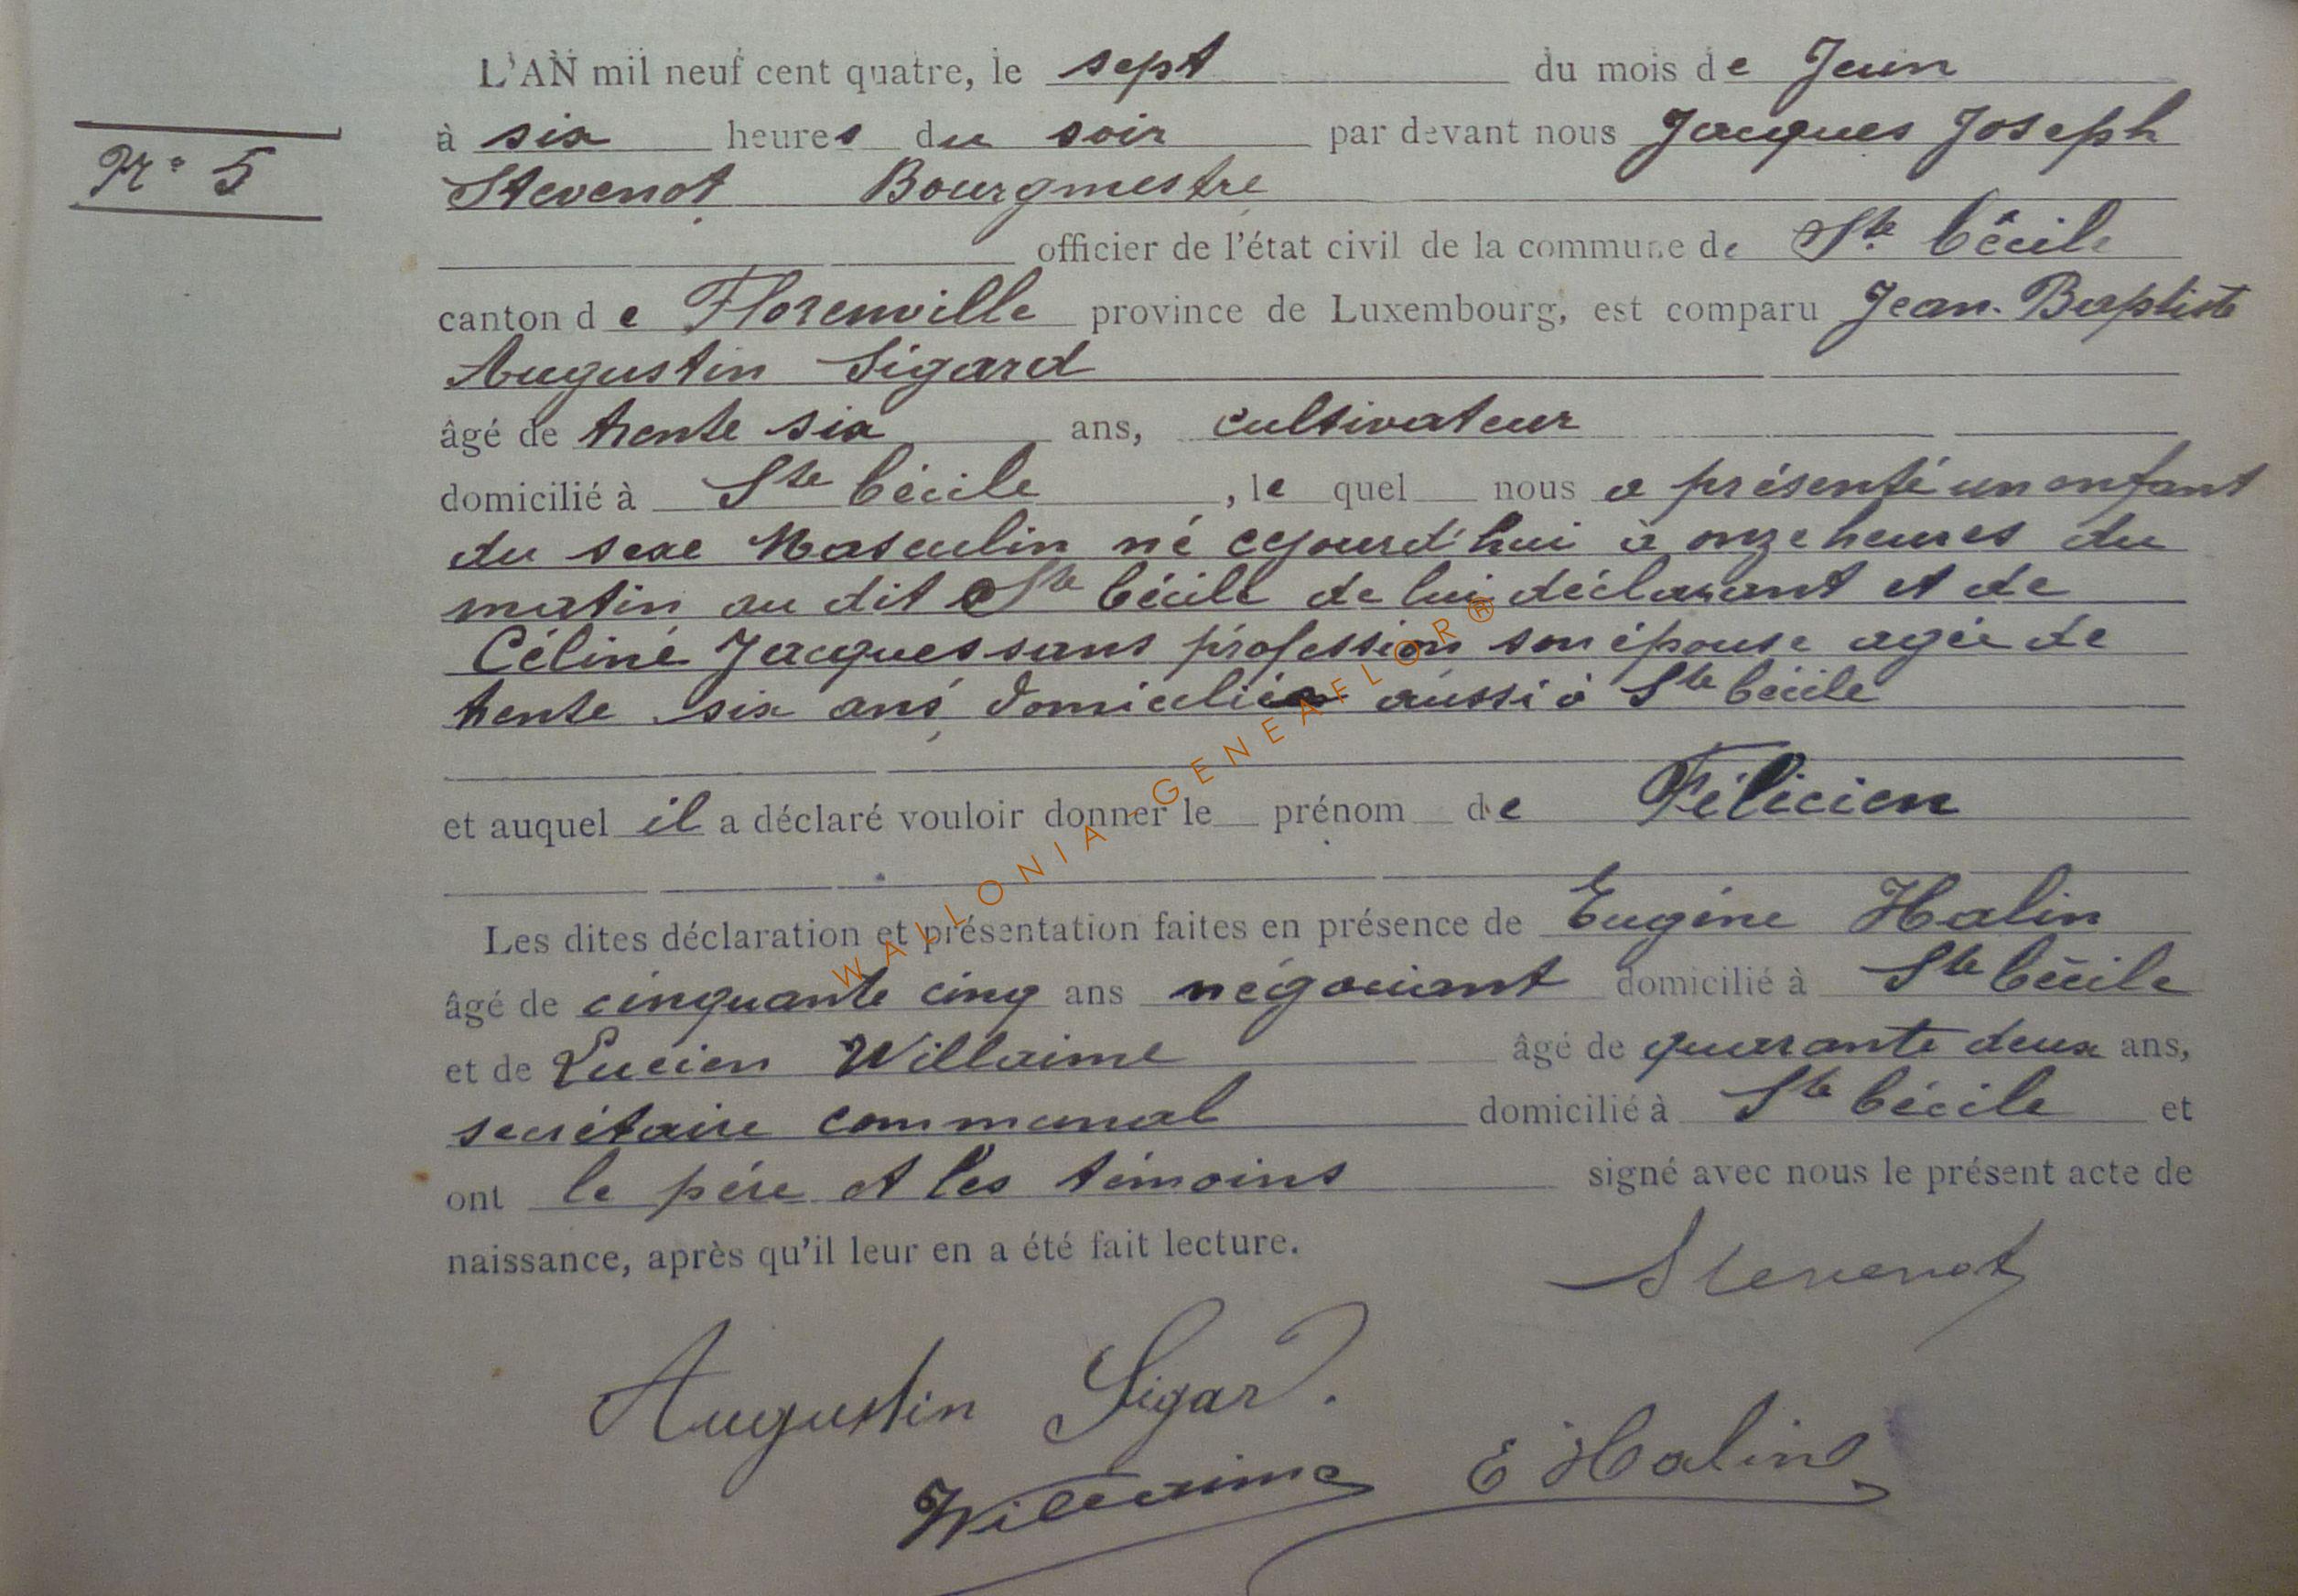 L'AN mil neuf cent quatre, le sept du mois de Juin
à six heures du soir par devant nous Jacques Joseph
N° 5
Stevenot Bourgmestre
officier de l'état civil de la commune de Ste Cécile
canton de Florenville province de Luxembourg, est comparu Jean-Baptiste
Augustin Sigard
âgé de trente six ans, cultivateur
domicilié à Ste Cécile, le quel nous a présenté un enfant
du sexe Masculin né cejourd'hui à onze heures du
matin au dit Ste Cécile de lui déclarant et de
Céline Jacques sans profession son épouse agée de
trente six ans domiciliée aussi à Ste Cécile
et auquel il a déclaré vouloir donner le prénom de Félicien
Les dites déclaration et présentation faites en présence de Eugéne Halin
âgé de cinquante cinq ans négociant domicilié à Ste Cécile
et de Lucien Willaime âgé de quarante deux ans,
secrétaire communal domicilié à Ste Cécile et
ont le pére et les témoins signé avec nous le présent acte de
naissance, après qu'il leur en a été fait lecture.
Stevenot
Augustin Sigard.
Willaime E Halin
WALLONIA - GENEAFLOR®